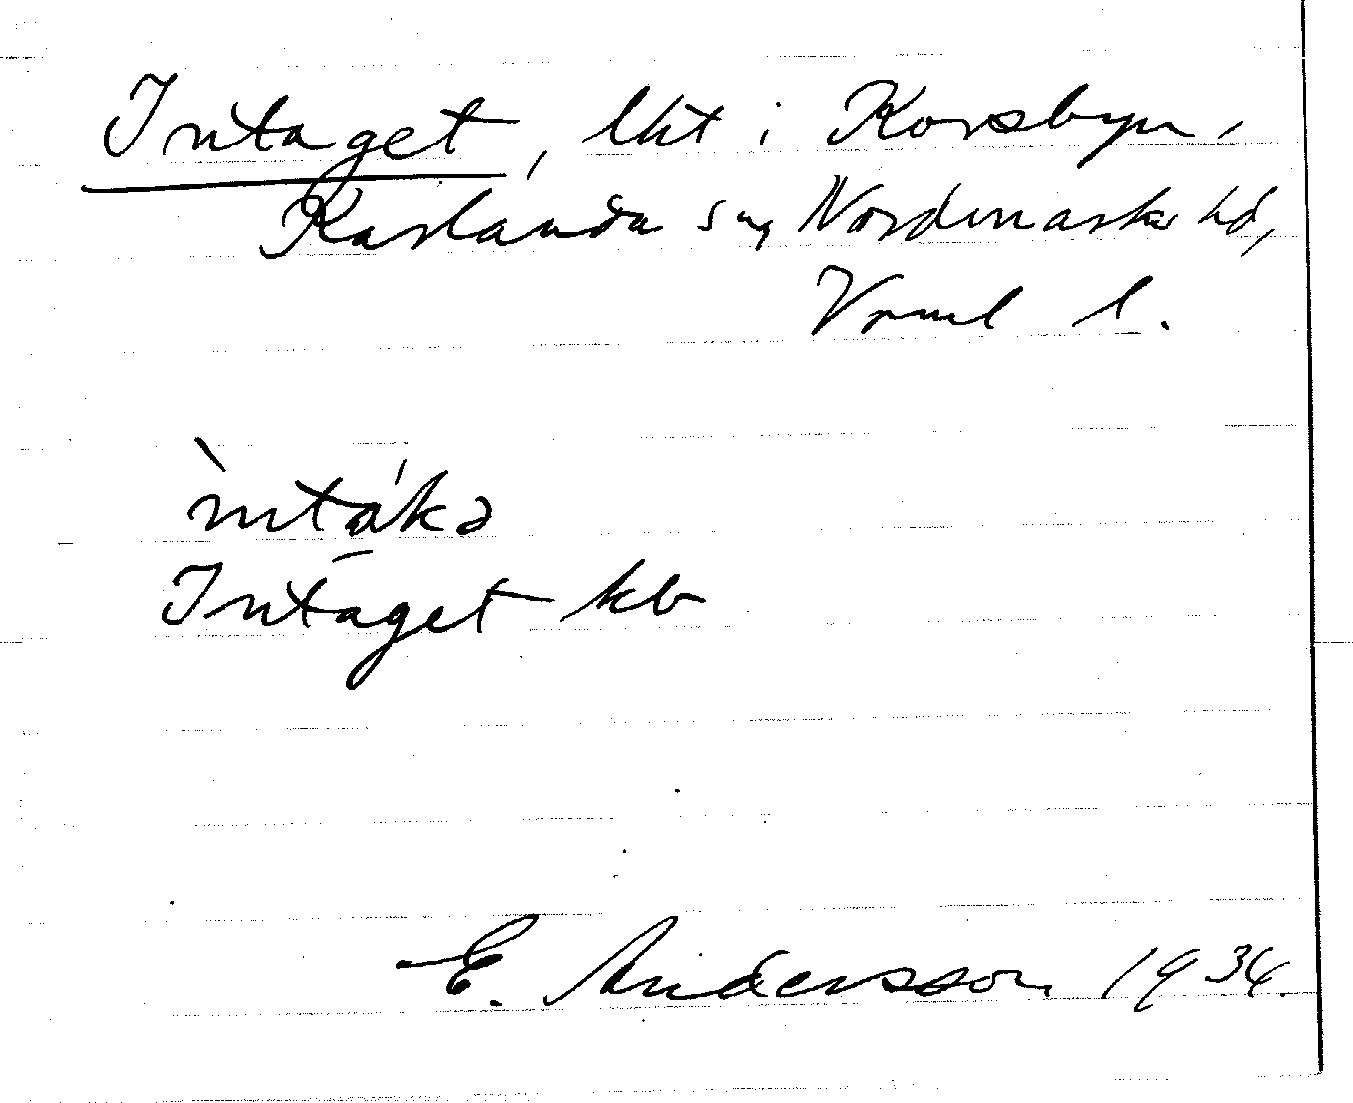 Intaget, lht i Korsbyn,
Karlanda sn, Nordmarks hd,
Vrml l.
ìntákə
Intaget kb
E. Andersson 1934.